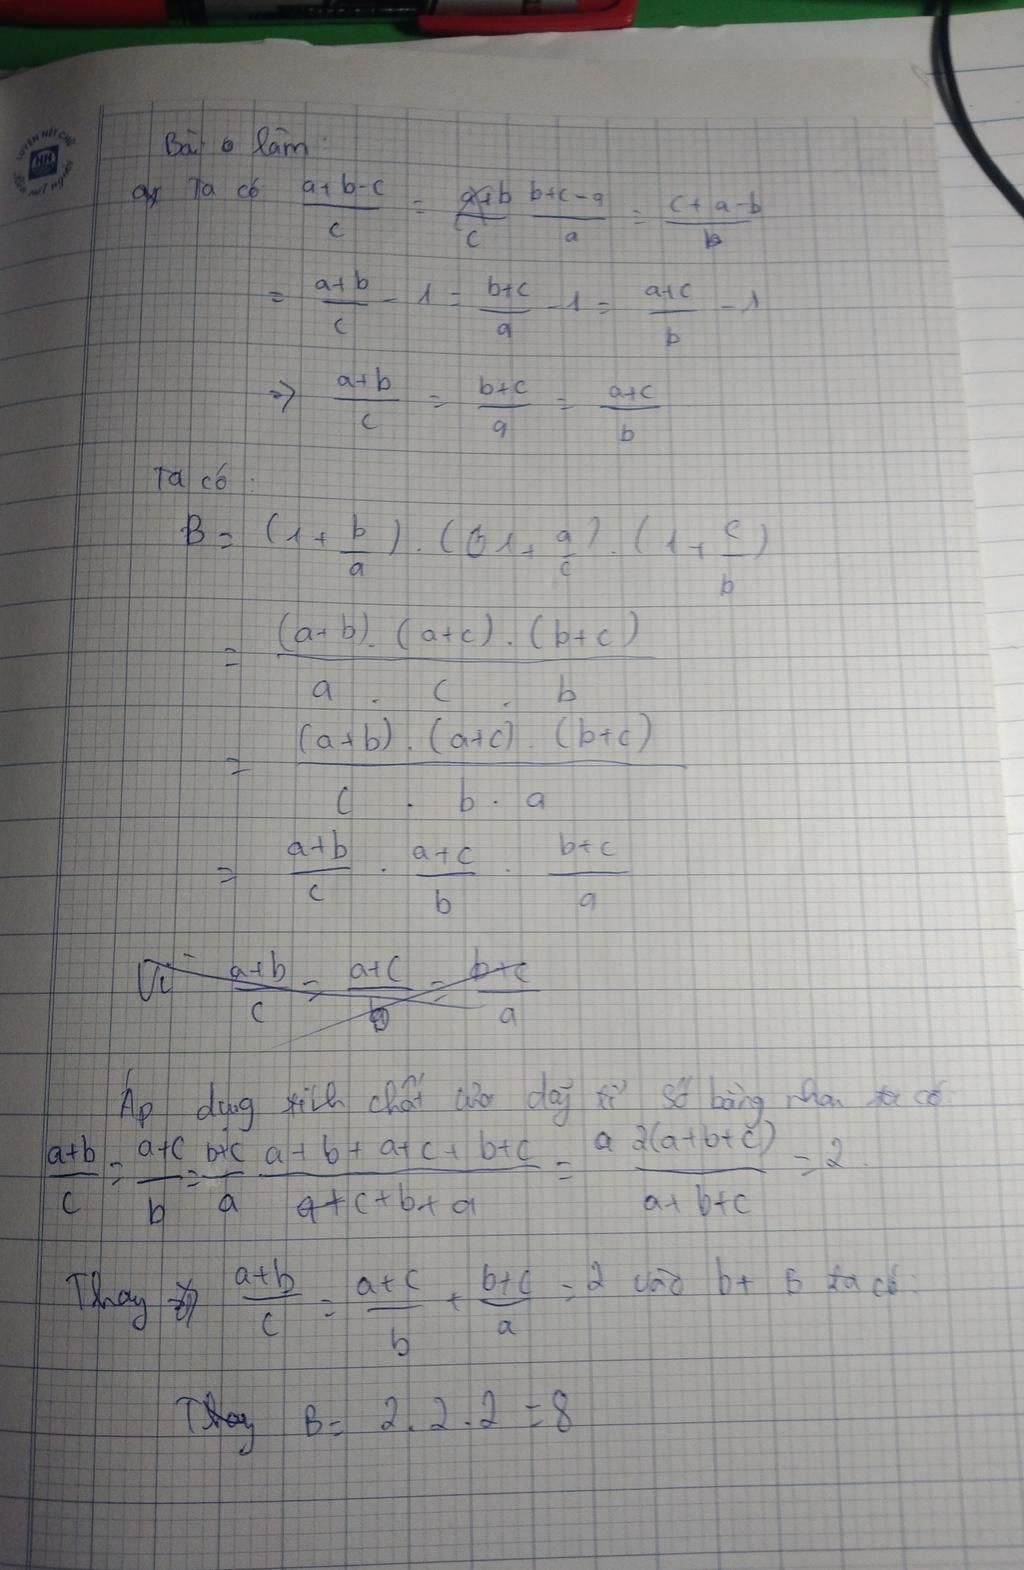 Bài làm:
a, Ta có (a+b-c)/c = (b+c-a)/a = (c+a-b)/b
= (a+b)/c - 1 = (b+c)/a - 1 = (a+c)/b - 1
=> (a+b)/c = (b+c)/a = (a+c)/b
Ta có:
B = (1 + b/a) . (1 + a/c) . (1 + c/b)
= ((a+b) . (a+c) . (b+c))/(a . c . b)
= ((a+b) . (a+c) . (b+c))/(c . b . a)
= (a+b)/c . (a+c)/b . (b+c)/a
Vì (a+b)/c = (a+c)/b = (b+c)/a
Áp dụng chất dãy tỉ số bằng nhau ta có:
(a+b)/c = (a+c)/b = (b+c)/a (a+b+a+c+b+c)/(c+b+a) = (2(a+b+c))/(a+b+c) = 2.
Thay (a+b)/c = (a+c)/b + (b+c)/a = 2 vào ta có:
B = 2 . 2 . 2 = 8